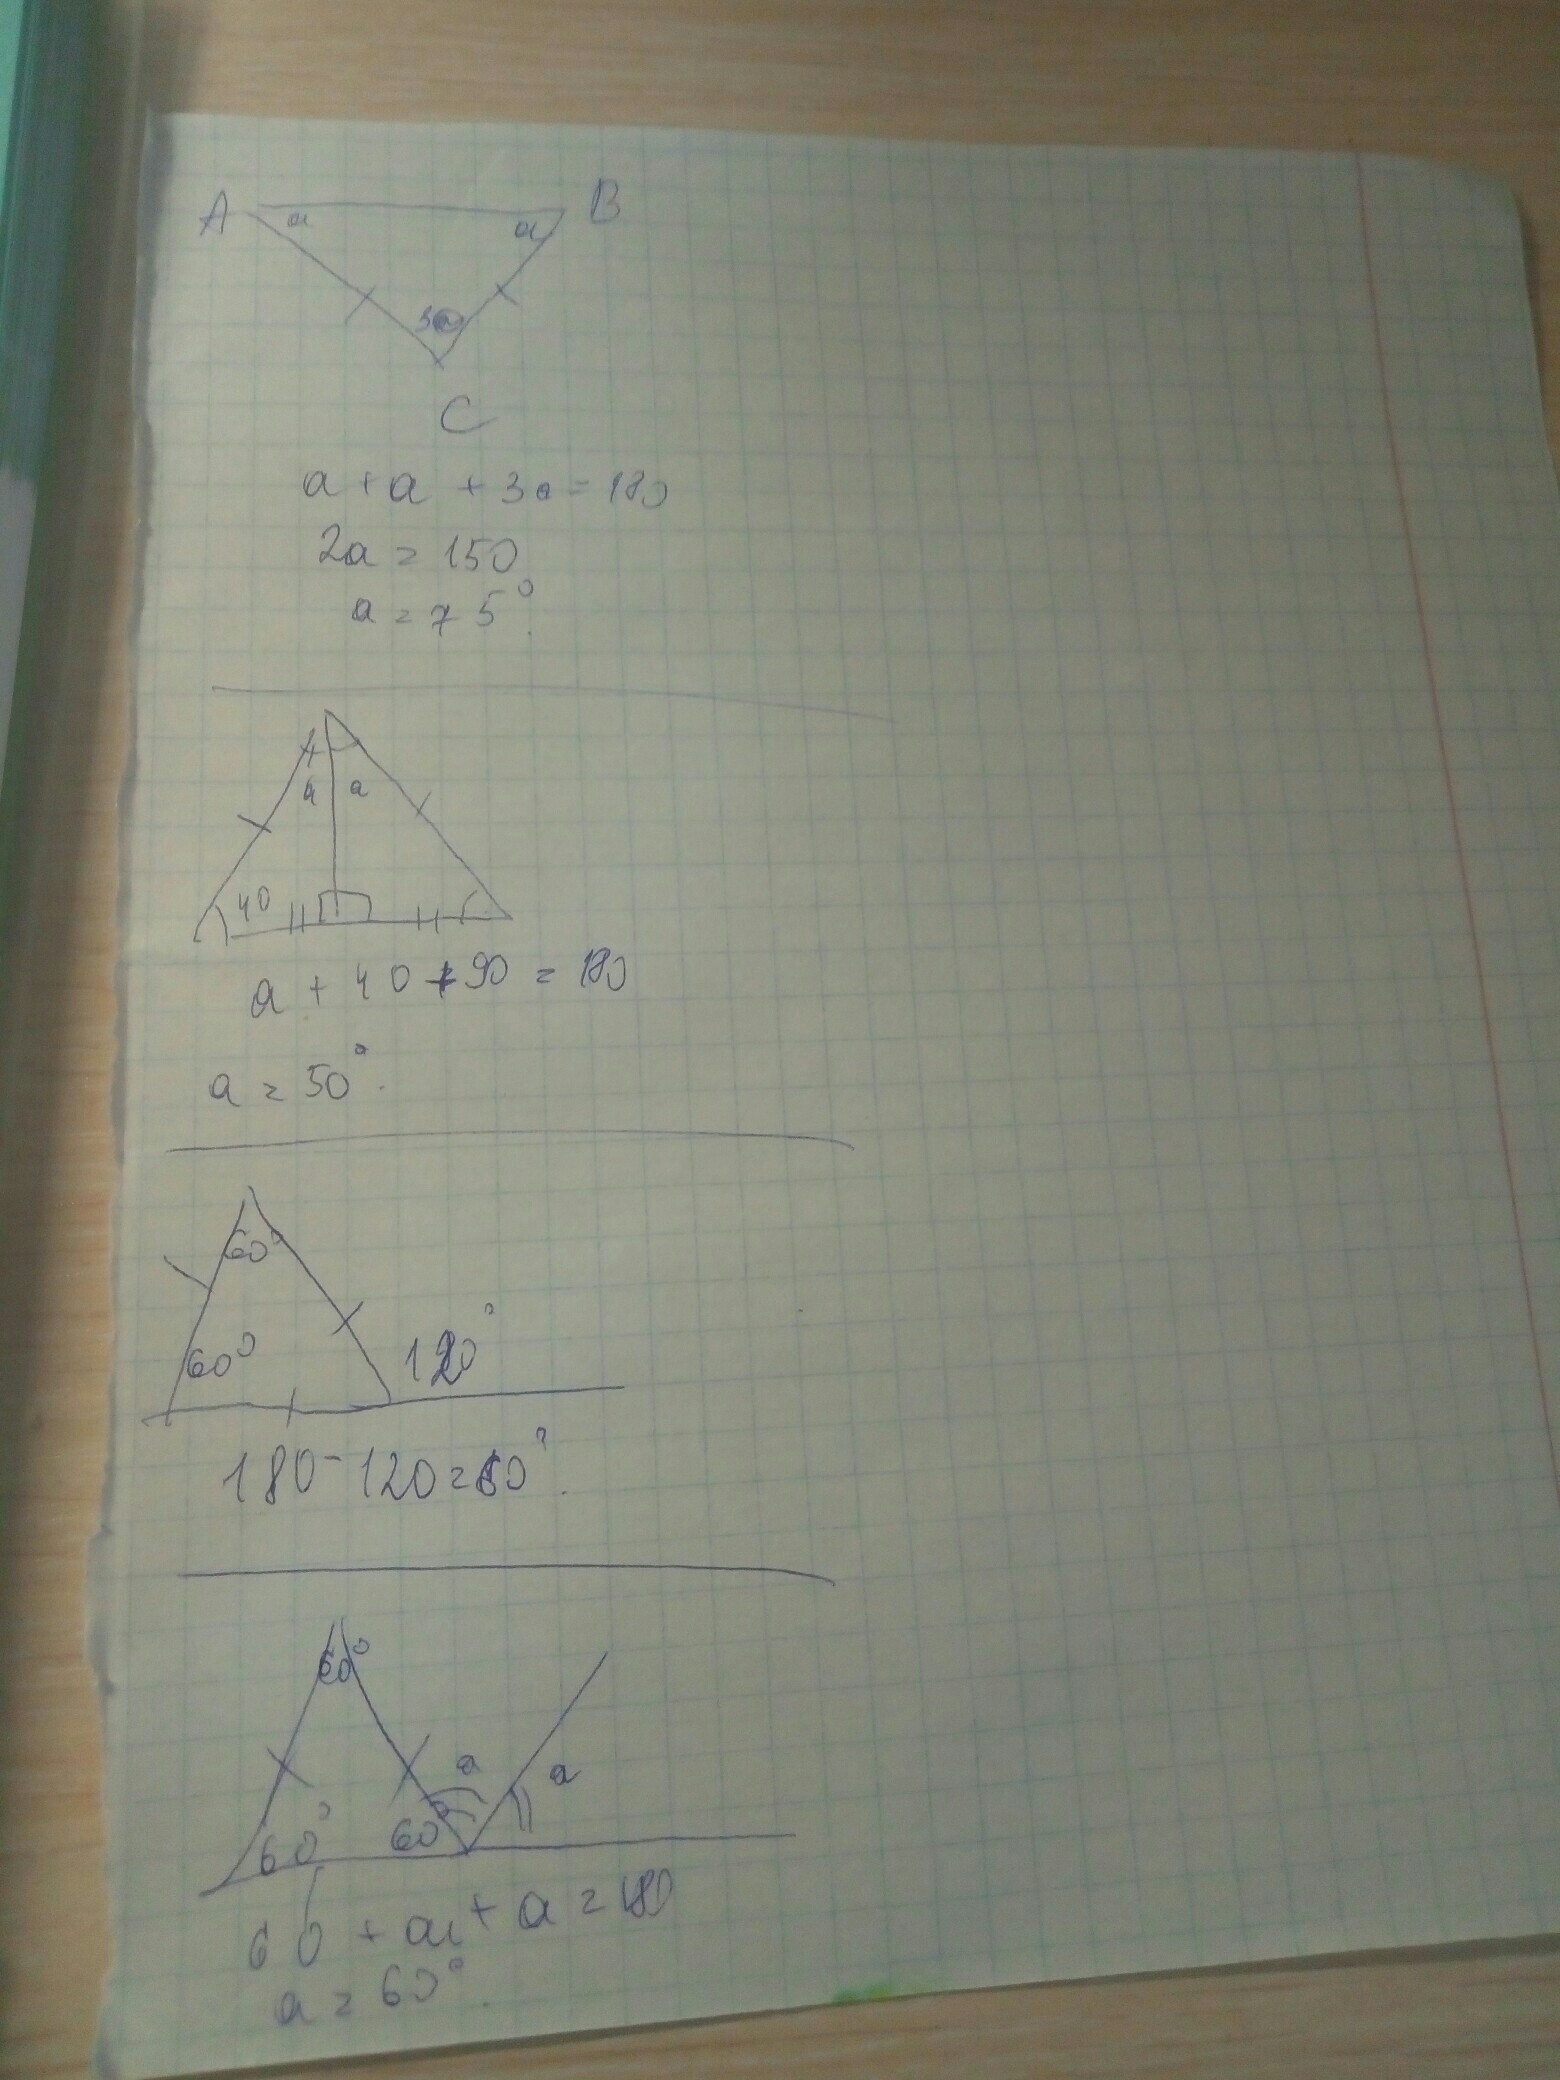 A a a B
30
C
a + a + 30 = 180
2a = 150
a = 75°.
a a
40
a + 40 + 90 = 180
a = 50°.
60°
60° 120°
180 - 120 = 60°.
60°
a a
60° 60°
60 + a + a = 180
a = 60°.